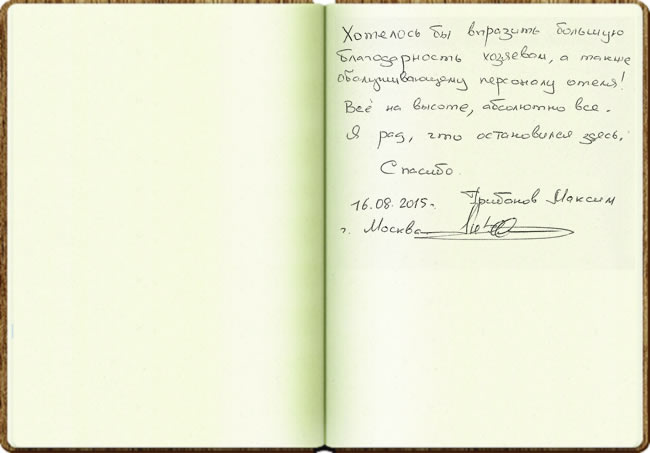 Хотелось бы выразить большую
благодарность хозяевам, а также
обслуживающему персоналу отеля!
Всё на высоте, абсолютно все.
Я рад, что остановился здесь.
Спасибо.
16.08.2015г. Грибанов Максим
г. Москва